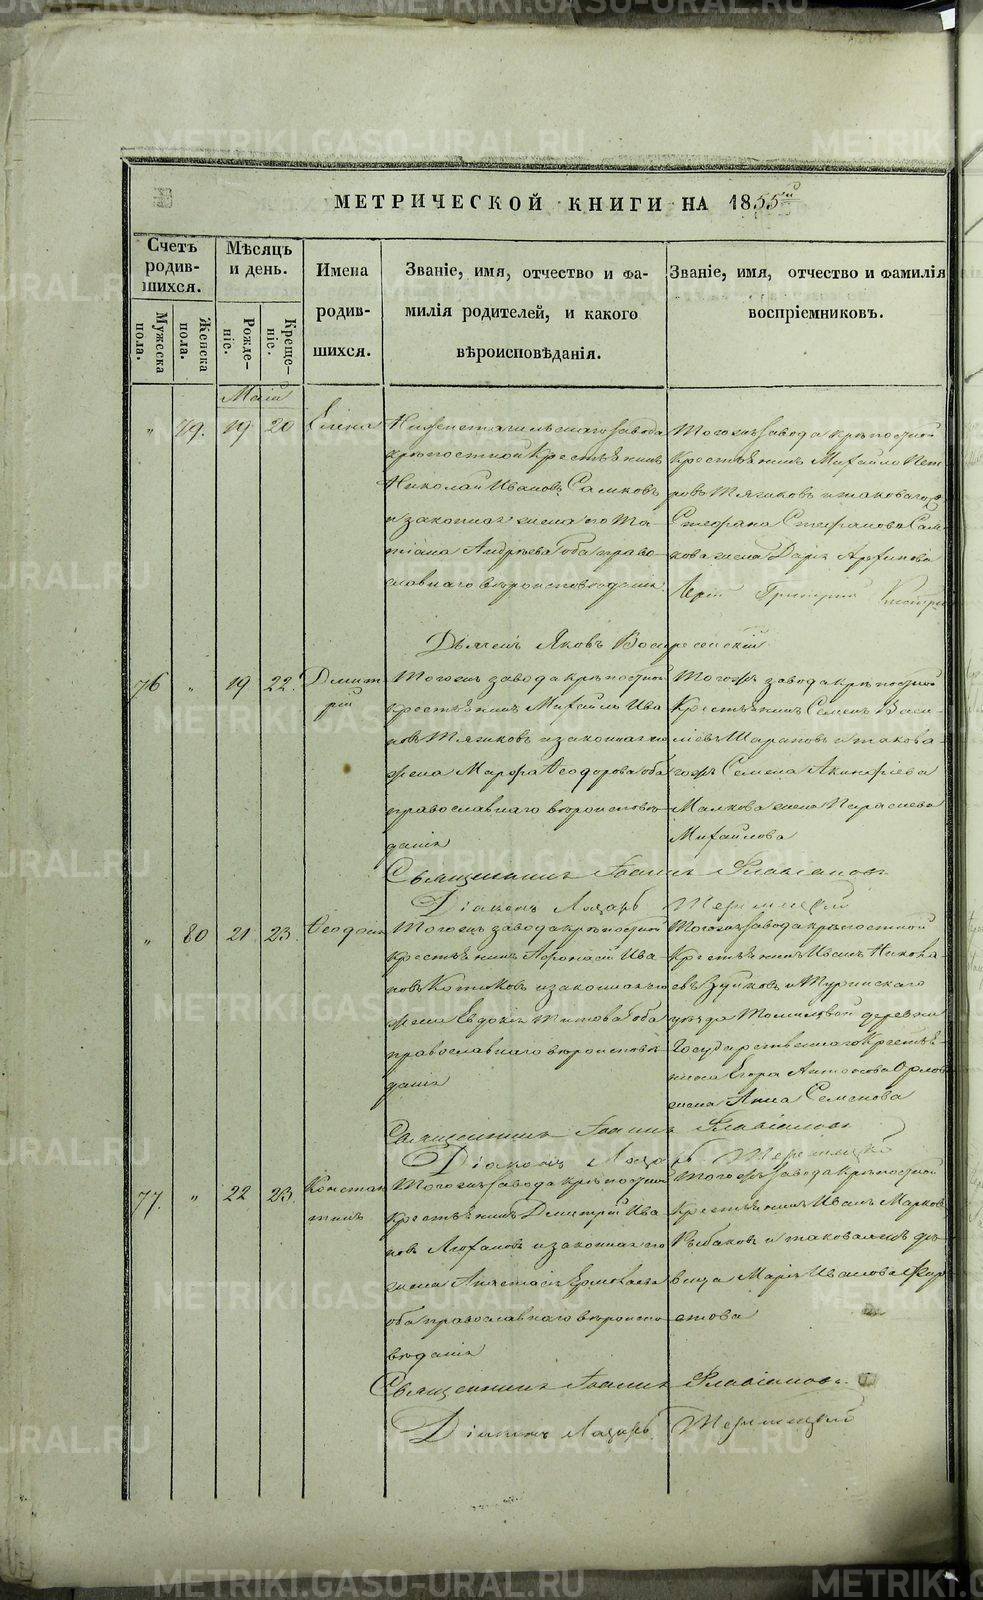 МЕТРИЧЕСКОЙ КНИГИ НА 1855й
Счетъ родив-шихся.
Мѣсяцъ и день.
Имена родив-шихся.
Званіе, имя, отчество и фа-
милія родителей, и какого
вѣроисповѣданія.
Званіе, имя, отчество и фамилія
воспріемниковъ.
Мужеска пола.
Женска пола.
Рожде-ніе.
Креще-ніе.
Маій
" 79. 19 20 Елена
Нижнетагильскаго завода
крѣпостной крестьянинъ
Николай Ивановъ Самковъ
и законная жена его Та-
тіана Андреева оба право-
славнаго вѣроисповѣданія.
Тогожъ завода крѣпостной
крестьянинъ Михайло Пет-
ровъ Тягиковъ и таковагожъ
Стефана Стефанова Сам-
кова жена Дарія
Іерей Григорій
Дьячекъ Яковъ Воскресенскій
76 " 19 22. Дмит-
рій
Тогожъ завода крѣпостной
крестьянинъ Михайлъ Ива-
новъ Тягиковъ и законная его
жена Марфа Ѳеодорова оба
православнаго вѣроисповѣ-
данія
Тогожъ завода крѣпостной
крестьянинъ Семенъ Васи-
льевъ Шараповъ и такова-
гожъ Семена Акинфіева
Малкова жена Параскева
Михайлова
Священникъ Іоаннъ Флавіановъ
Діаконъ Лазарь
" 80 21 23. Ѳеодосія
Тогожъ завода крѣпостной
крестьянинъ Афонасій Ива-
новъ Котиковъ и законная его
жена Евдокія Титова оба
православнаго вѣроисповѣ-
данія
Тогожъ завода крѣпостной
крестьянинъ Иванъ Никола-
евъ Зуйковъ и Туринскаго
уѣзда Томиловой деревни
Государственнаго крестья-
нина Егора Антонова
жена Анна Семенова
Священникъ Іоаннъ Флавіановъ
Діаконъ Лазарь
77. " 22 23. Констан-
тинъ
Тогожъ завода крѣпостной
крестьянинъ Дмитрій Ива-
новъ и законная его
жена Анастасія Ермолаева
оба православнаго вѣроиспо-
вѣданія
Тогожъ завода крѣпостной
крестьянинъ Иванъ Марковъ
Рыбаковъ и таковаяжъ дѣ-
вица Марія Иванова Фир-
стова
Священникъ Іоаннъ Флавіановъ
Діаконъ Лазарь
METRIKI.GASO-URAL.RU